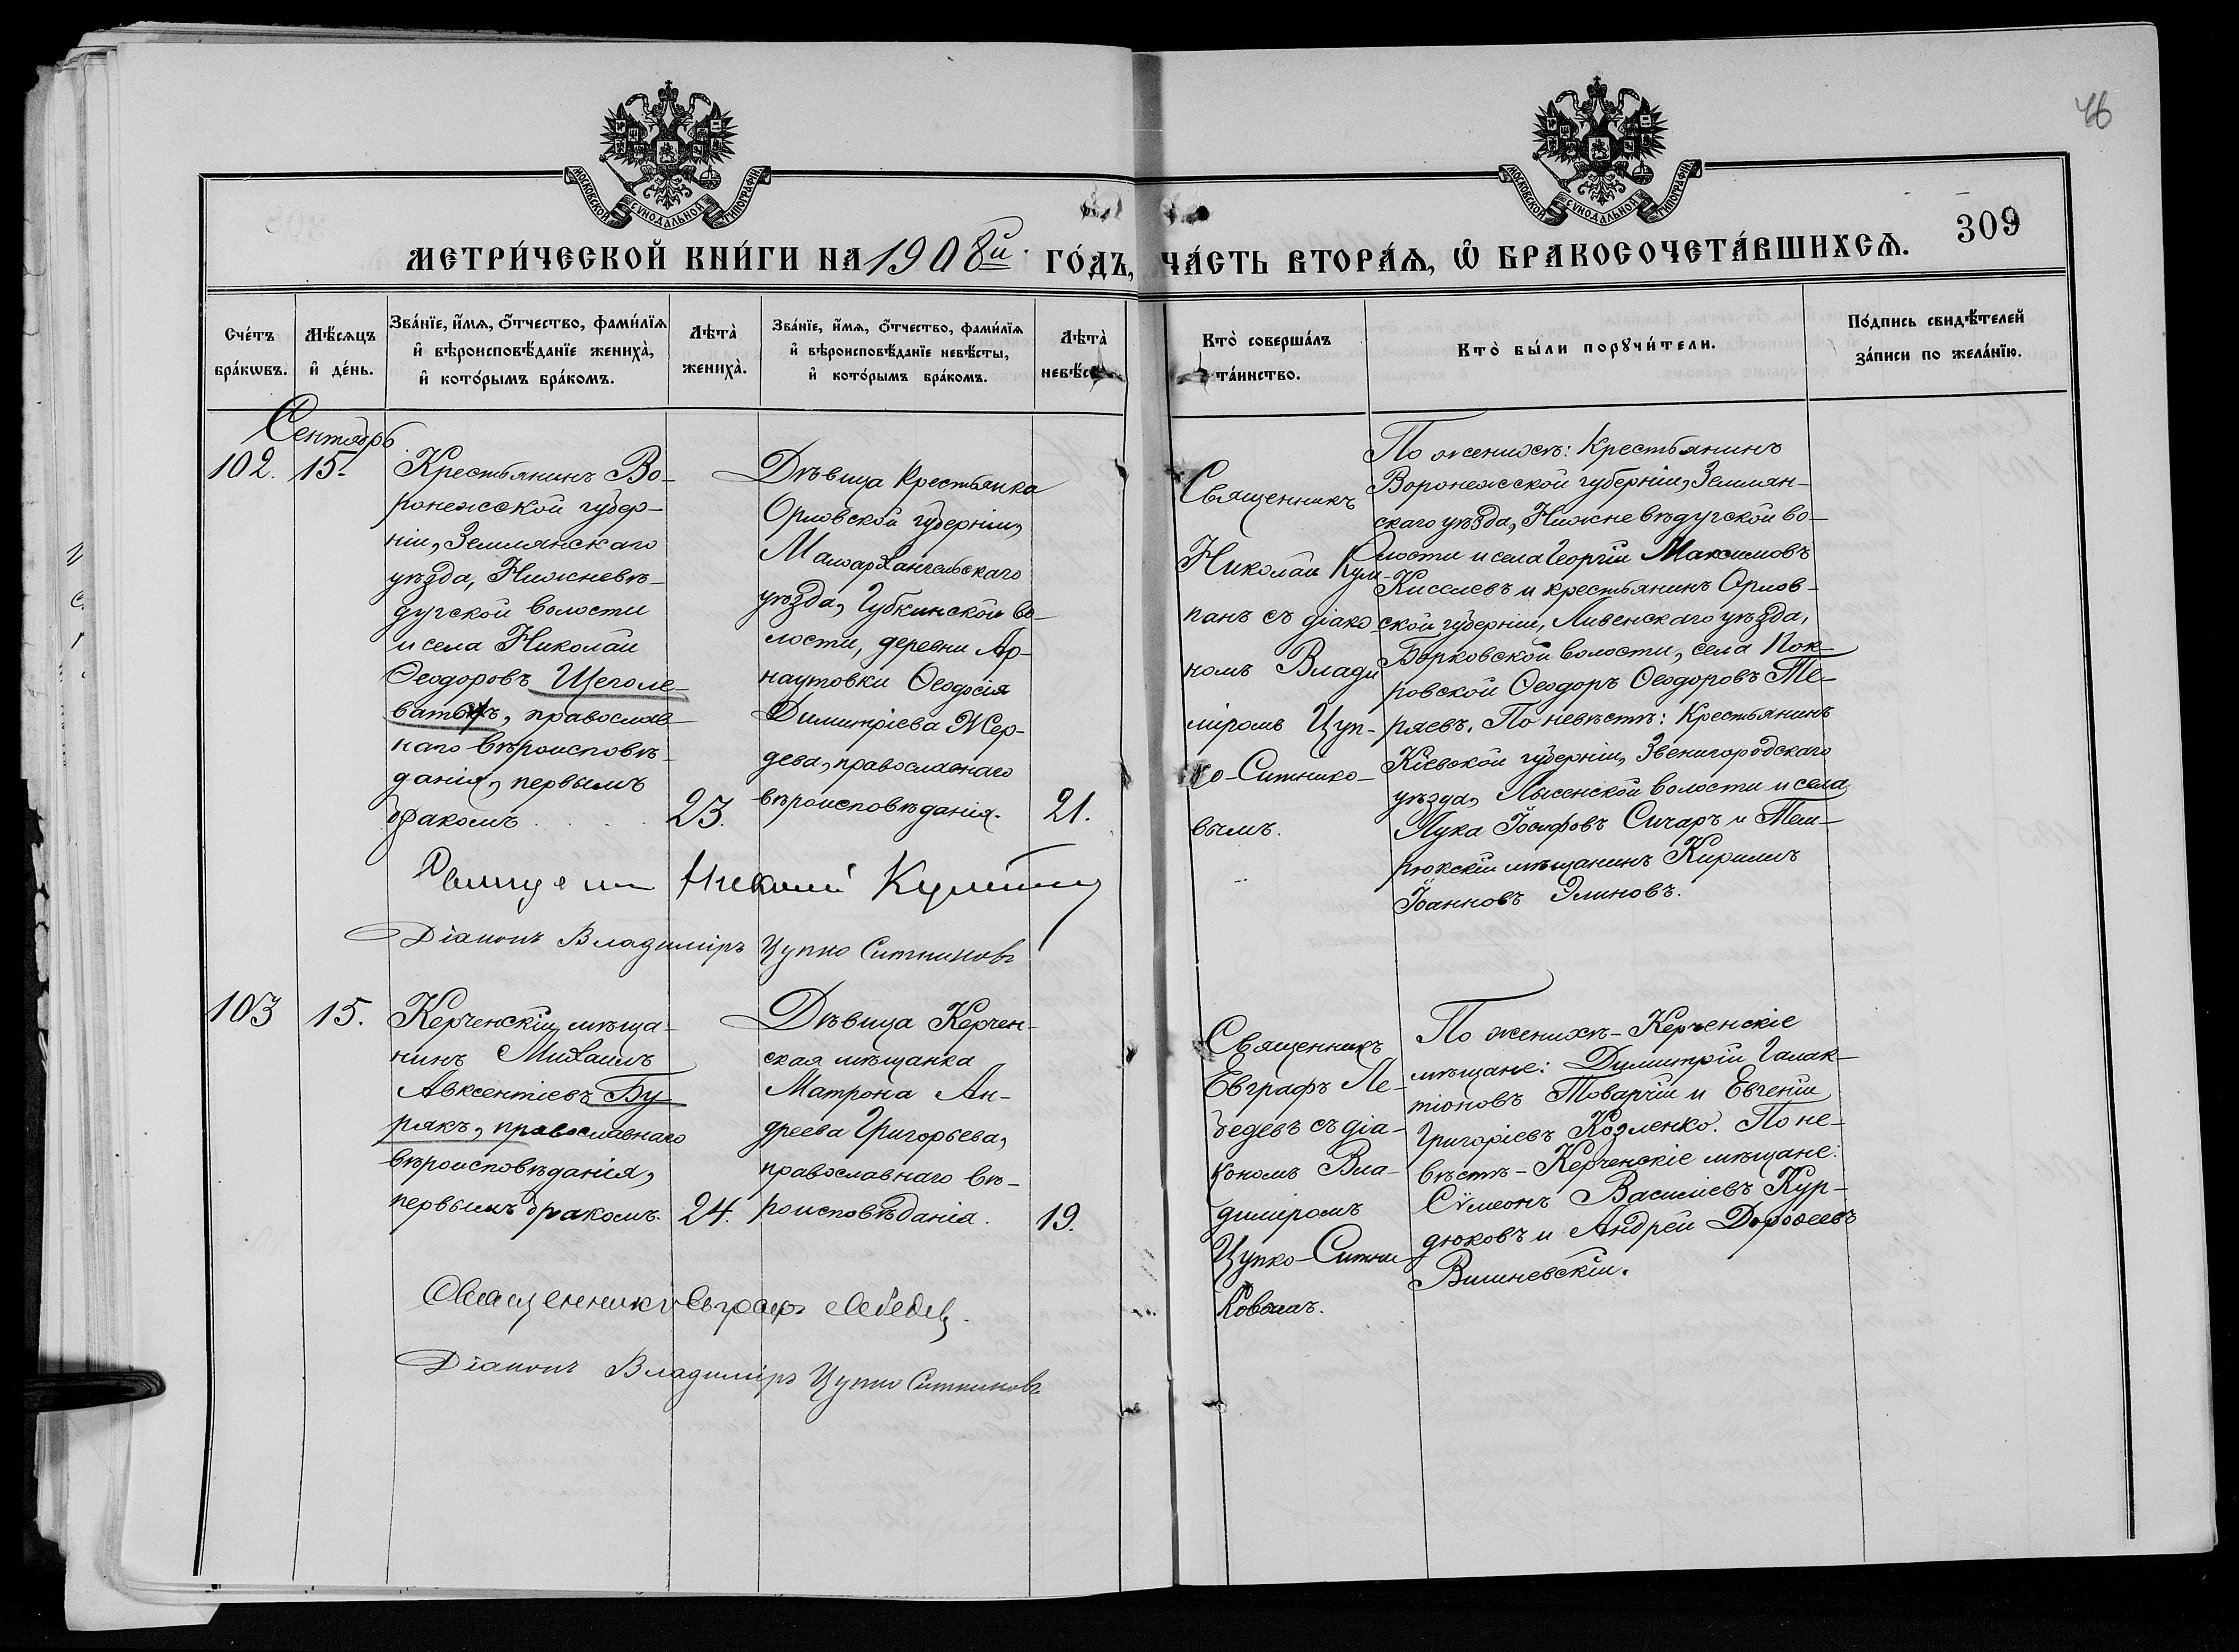 46
МОСКОВСКОЙ СѴНОДАЛЬНОЙ ТИПОГРАФІИ
МОСКОВСКОЙ СѴНОДАЛЬНОЙ ТИПОГРАФІИ
309
МЕТРИ́ЧЕСКОЙ КНИ́ГИ НА 1908й ГО́ДЪ, ЧА́СТЬ ВТОРА́Ѧ, Ѡ҆ БРАКОСОЧЕТА́ВШИХСѦ.
Сче́тъ
бра́кѡвъ.
Мѣ́сѧцъ
и҆ де́нь.
Зва́нїе, и҆́мѧ, ѻ҆́тчество, фами́лїѧ
и҆ вѣроисповѣ́данїе женихà,
и҆ кото́рымъ бра́комъ.
Лѣтà
женихà.
Зва́нїе, и҆́мѧ, ѻ҆́тчество, фами́лїѧ
и҆ вѣроисповѣ́данїе невѣ́сты,
и҆ кото́рымъ бра́комъ.
Лѣтà
невѣ́с
Кто̀ соверша́лъ
та́инство.
Кто̀ бы́ли порꙋчи́тели.
По́дпись свидѣ́телей
за́писи по жела́нїю.
Сентябрь
102.
15.
Крестьянинъ Во-
ронежской губер-
ніи, Землянскаго
уѣзда, Нижневѣ-
дугской волости
и села Николай
Ѳеодоровъ Щеголе-
ватыхъ, православ-
наго вѣроисповѣ-
данія, первымъ
бракомъ
23.
Дѣвица крестьянка
Орловской губерніи,
Малоархангельскаго
уѣзда, Губкинской во-
лости, деревни Ар-
наутовки Ѳеодосія
Димитріева Жер-
дева, православнаго
вѣроисповѣданія.
21.
Священникъ
Николай Кули-
панъ съ діако-
номъ Влади
міромъ Цуп-
ко-Ситнико-
вымъ.
По женихѣ: Крестьянинъ
Воронежской губерніи, Землян-
скаго уѣзда, Нижневѣдугской во-
лости и села Георгій Максимовъ
Киселевъ и крестьянинъ Орлов-
ской губерніи, Ливенскаго уѣзда,
Борковской волости, села Пок-
ровской Ѳеодоръ Ѳеодоровъ Те-
ряевъ. По невѣстѣ: Крестьянинъ
Кіевской губерніи, Звенигородскаго
уѣзда, Лысенской волости и села
Лука Іосифовъ Сичаръ и Тем-
рюкскій мѣщанинъ Кириллъ
Іоанновъ Элиновъ.
Николай
Діаконъ Владиміръ Цупко Ситниковъ
103
15.
Керченскій мѣща-
нинъ Михаилъ
Авксентіевъ Бу-
рякъ, православнаго
вѣроисповѣданія,
первымъ бракомъ.
24.
Дѣвица Керчен-
ская мѣщанка
Матрона Ан-
дреева Григорьева,
православнаго вѣ-
роисповѣданія.
19.
Священникъ
Евграфъ Ле-
бедевъ съ діа-
кономъ Вла-
диміромъ
Цупко-Ситни
ковымъ.
По женихѣ - Керченскіе
мѣщане: Димитрій Галак-
тіоновъ Товарчій и Евгеній
Григоріевъ Козленко. По не-
вѣстѣ - Керченскіе мѣщане:
Сѵмеонъ Василіевъ Кур-
дюковъ и Андрей Дороѳеевъ
Вишневскій.
Священникъ Евграфъ Лебедевъ.
Діаконъ Владиміръ Цупко Ситниковъ